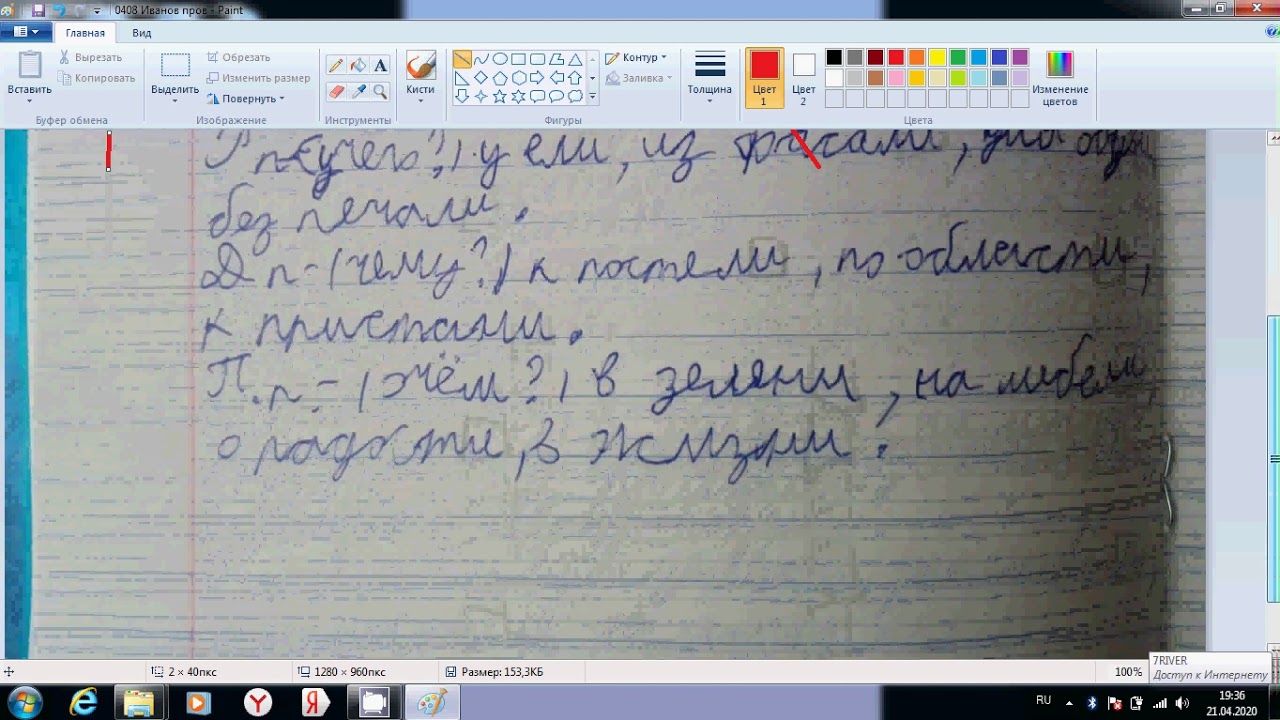 0408 Иванов пров - Paint
Главная Вид
Вставить
Вырезать
Копировать
Буфер обмена
Выделить
Обрезать
Изменить размер
Повернуть
Изображение
Инструменты
Кисти
Контур
Заливка
Фигуры
Толщина
Цвет 1
Цвет 2
Изменение цветов
Цвета
(учего?) у ели, из
без печали.
Д п - (чему?) к постели, по области,
к пристани.
П.п. - (очём?) в зеляни, на мебели
о радости, в жизни.
2 × 40пкс 1280 × 960пкс Размер: 153,3КБ 100%
7RIVER
Доступ к Интернету
RU 19:36
21.04.2020